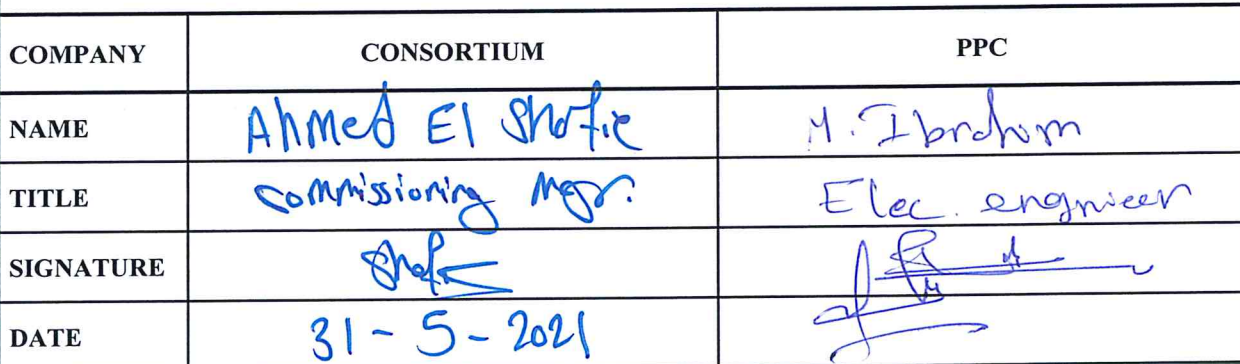 COMPANY CONSORTIUM PPC
NAME Ahmed El Shafie M. Ibrahim
TITLE Commissioning Mgr. Elec. engineer
SIGNATURE
DATE 31-5-2021